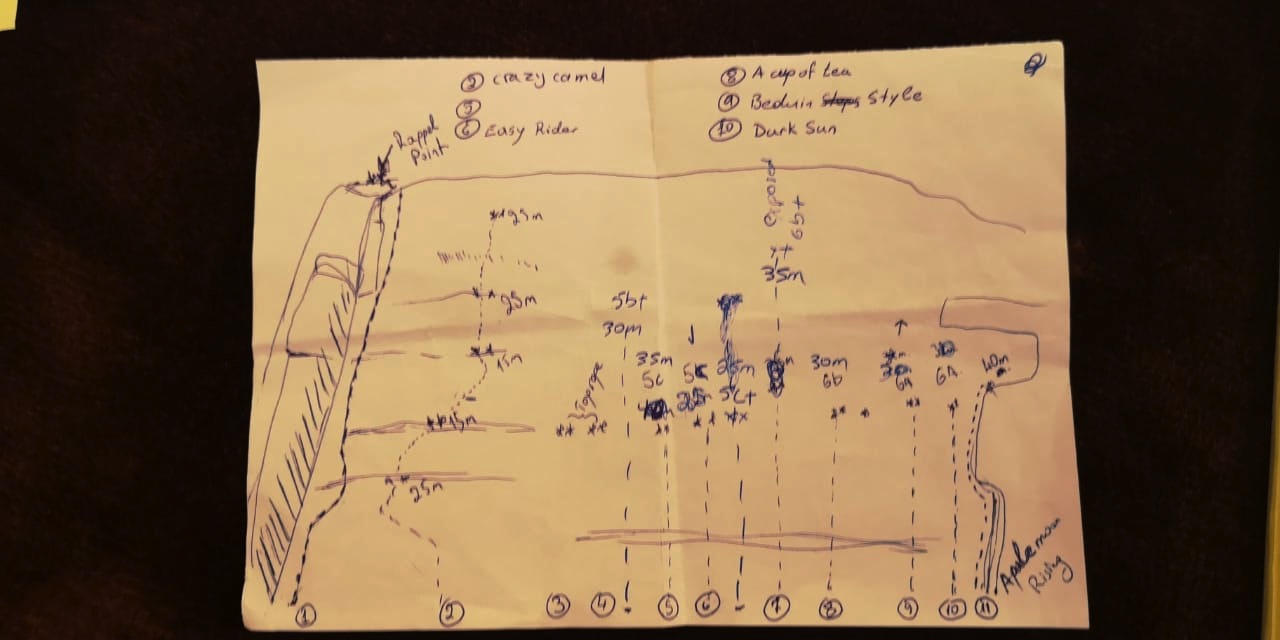 ② Crazy camel
⑤
⑥ Easy Rider
⑧ A cup of tea
⑨ Beduin Style
⑩ Dark Sun
Rappel
Point
25m
25m
15m
15m
25m
Toprope
5b+
30m
35m
5c
5c+
Exposed
6b+
35m
30m
6b
6a
6A
40m
Rising
① ② ③ ④ ⑤ ⑥ ⑦ ⑧ ⑨ ⑩ ⑪